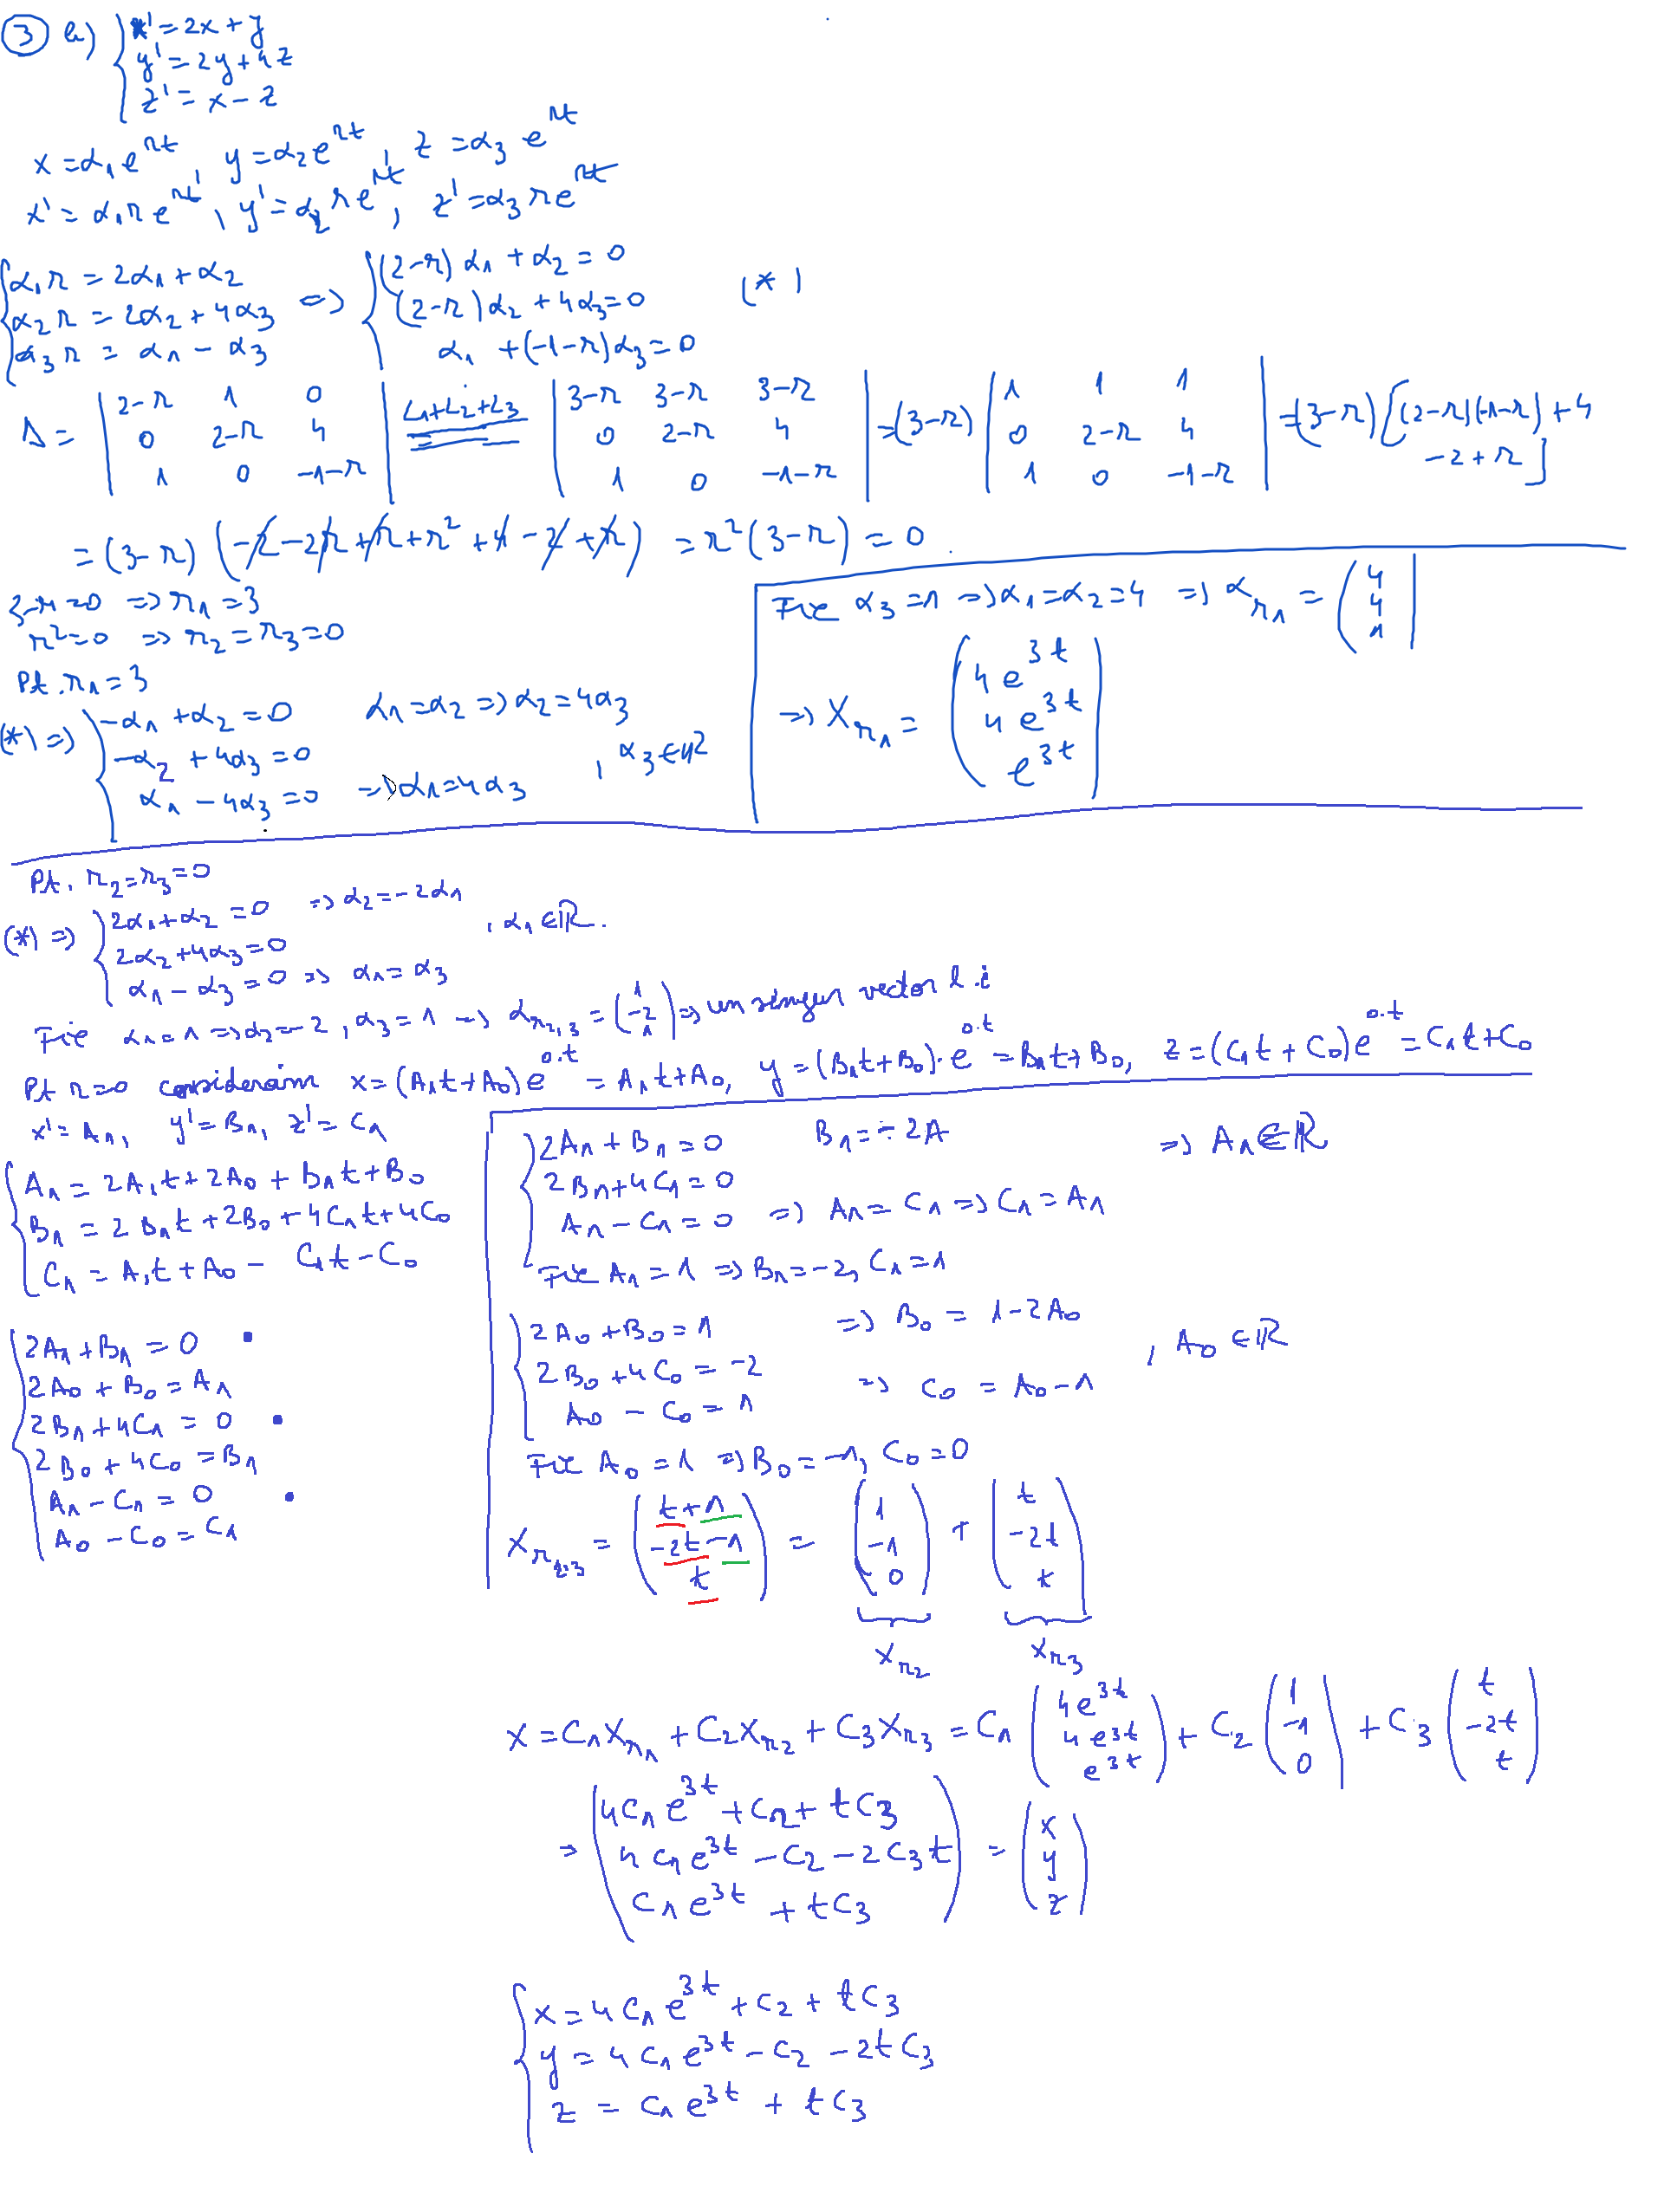 ③ b) { x' = 2x + y
y' = 2y + 4z
z' = x − z
x = α₁e^{rt}, y = α₂e^{rt}, z = α₃ e^{rt}
x' = α₁r e^{rt}, y' = α₂ r e^{rt}, z' = α₃ r e^{rt}
{ α₁r = 2α₁ + α₂ => { (2−r) α₁ + α₂ = 0
α₂ r = 2α₂ + 4α₃ (2−r) α₂ + 4α₃ = 0 (*)
α₃ r = α₁ − α₃ α₁ + (−1−r) α₃ = 0
Δ = | 2−r 1 0 | L₁+L₂+L₃ = | 3−r 3−r 3−r | = (3−r) | 1 1 1 | = (3−r) [ (2−r)(−1−r) + 4
| 0 2−r 4 | | 0 2−r 4 | | 0 2−r 4 | −2 + r ]
| 1 0 −1−r | | 1 0 −1−r | | 1 0 −1−r |
= (3−r) (−2 − 2r + r + r² + 4 − 2 + r) = r² (3−r) = 0
3−r = 0 => r₁ = 3
r² = 0 => r₂ = r₃ = 0
Pt. r₁ = 3
(*) => { −α₁ + α₂ = 0 α₁ = α₂ => α₂ = 4α₃
−α₂ + 4α₃ = 0 , α₃ ∈ ℝ
α₁ − 4α₃ = 0 => α₁ = 4α₃
Fie α₃ = 1 => α₁ = α₂ = 4 => α_{r₁} = ( 4 4 1 )
=> X_{r₁} = ( 4e^{3t} 4e^{3t} e^{3t} )
Pt. r₂ = r₃ = 0
(*) => { 2α₁ + α₂ = 0 => α₂ = −2α₁
2α₂ + 4α₃ = 0 , α₁ ∈ ℝ.
α₁ − α₃ = 0 => α₁ = α₃
Fie α₁ = 1 => α₂ = −2, α₃ = 1 => α_{r₂,₃} = ( 1 −2 1 ) => un singur vector l.i
Pt r = 0 considerăm x = (A₁t + A₀) e^{0·t} = A₁t + A₀, y = (B₁t + B₀)·e^{0·t} = B₁t + B₀, z = (C₁t + C₀) e^{0·t} = C₁t + C₀
x' = A₁, y' = B₁, z' = C₁
{ A₁ = 2A₁t + 2A₀ + B₁t + B₀
B₁ = 2B₁t + 2B₀ + 4C₁t + 4C₀
C₁ = A₁t + A₀ − C₁t − C₀
{ 2A₁ + B₁ = 0 •
2A₀ + B₀ = A₁
2B₁ + 4C₁ = 0 •
2B₀ + 4C₀ = B₁
A₁ − C₁ = 0 •
A₀ − C₀ = C₁
{ 2A₁ + B₁ = 0 B₁ = −2A => A₁ ∈ ℝ
2B₁ + 4C₁ = 0
A₁ − C₁ = 0 => A₁ = C₁ => C₁ = A₁
Fie A₁ = 1 => B₁ = −2, C₁ = 1
{ 2A₀ + B₀ = 1 => B₀ = 1 − 2A₀
2B₀ + 4C₀ = −2 , A₀ ∈ ℝ
A₀ − C₀ = 1 => C₀ = A₀ − 1
Fie A₀ = 1 => B₀ = −1, C₀ = 0
X_{r₂,₃} = ( t+1 −2t−1 t ) = ( 1 −1 0 ) + ( t −2t t )
X_{r₂} X_{r₃}
X = C₁X_{r₁} + C₂X_{r₂} + C₃X_{r₃} = C₁ ( 4e^{3t} 4e^{3t} e^{3t} ) + C₂ ( 1 −1 0 ) + C₃ ( t −2t t )
= ( 4C₁e^{3t} + C₂ + tC₃ ) = ( x
4C₁e^{3t} − C₂ − 2C₃t y
C₁e^{3t} + tC₃ z )
{ x = 4C₁e^{3t} + C₂ + tC₃
y = 4C₁e^{3t} − C₂ − 2tC₃
z = C₁e^{3t} + tC₃